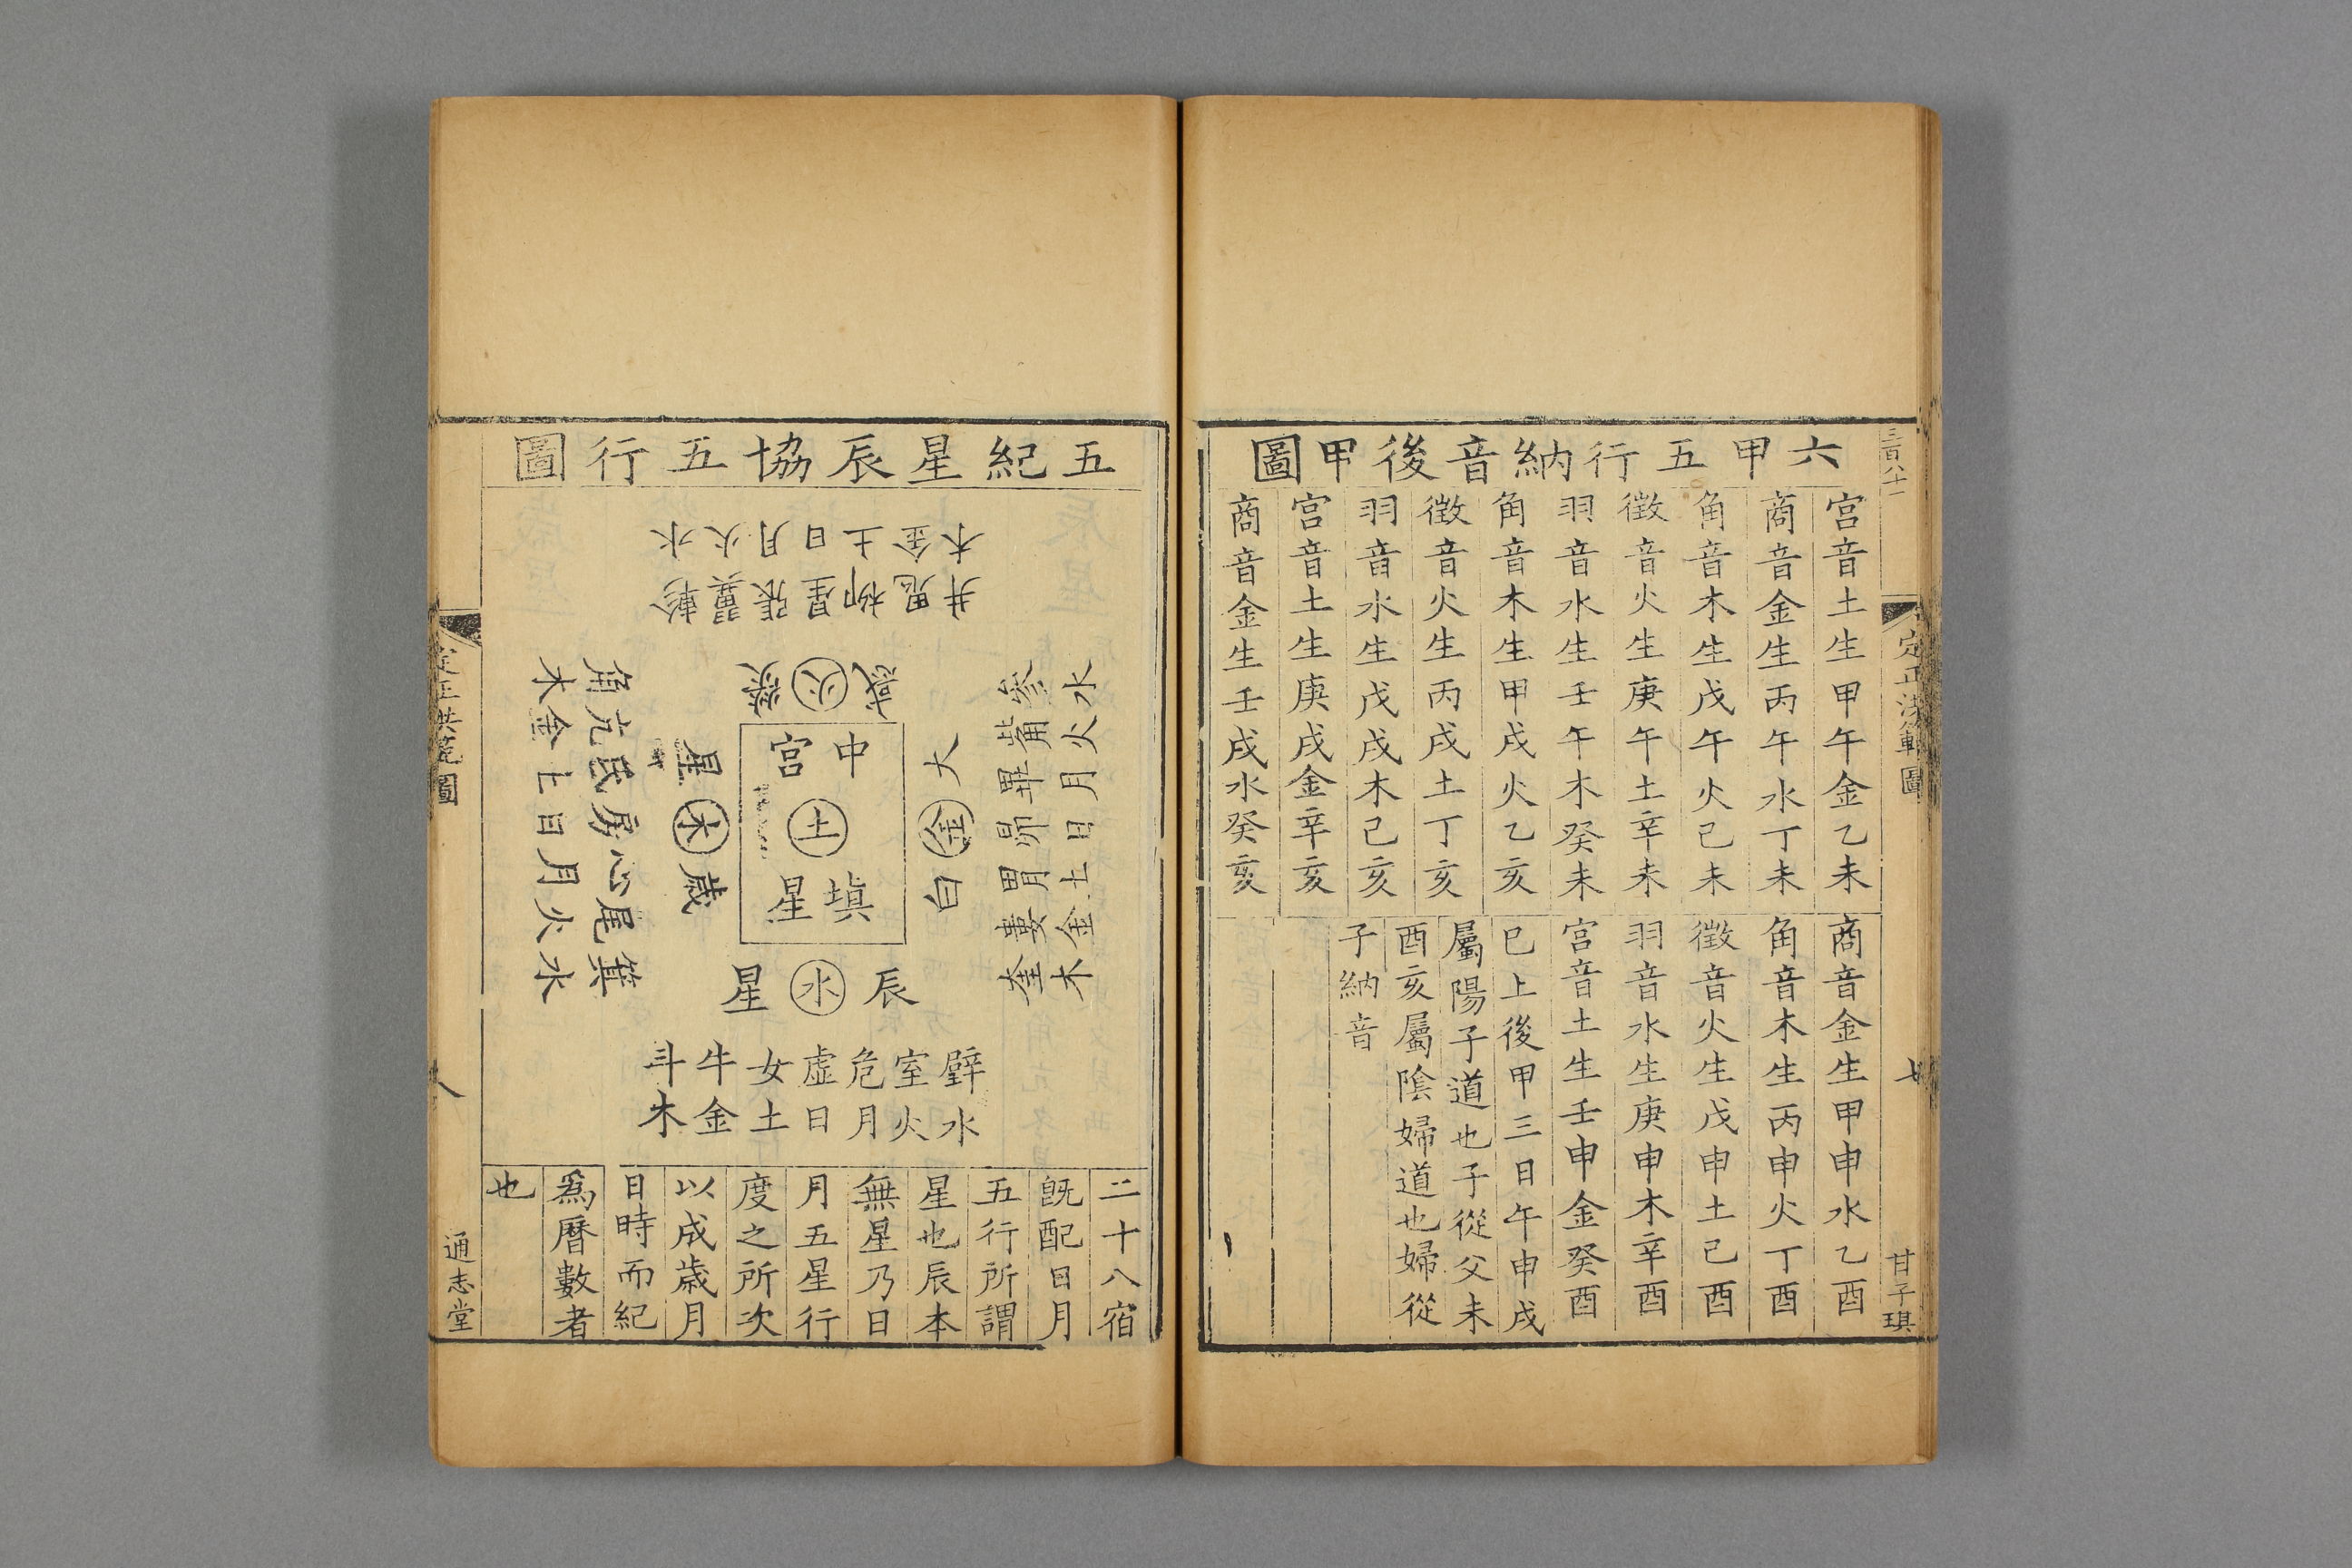 三百八十一
定正洪範圖
七
甘子琪
六甲五行納音後甲圖
宮音土生甲午金乙未
商音金生丙午水丁未
角音木生戊午火己未
徵音火生庚午土辛未
羽音水生壬午木癸未
角音木生甲戌火乙亥
徵音火生丙戌土丁亥
羽音水生戊戌木己亥
宮音土生庚戌金辛亥
商音金生壬戌水癸亥
商音金生甲申水乙酉
角音木生丙申火丁酉
徵音火生戊申土己酉
羽音水生庚申木辛酉
宮音土生壬申金癸酉
已上後甲三日午申戌
屬陽子道也子從父未
酉亥屬陰婦道也婦從
子納音
五紀星辰協五行圖
井鬼柳星張翼軫
木金土日月火水
熒火惑
參觜畢昴胃婁奎
水火月日土金木
太金白
中宮
土
填星
歲木星
角亢氐房心尾箕
木金土日月火水
辰水星
壁室危虛女牛斗
水火月日土金木
二十八宿
旣配日月
五行所謂
星也辰本
無星乃日
月五星行
度之所次
以成歲月
日時而紀
爲曆數者
也
定正洪範圖
八
通志堂